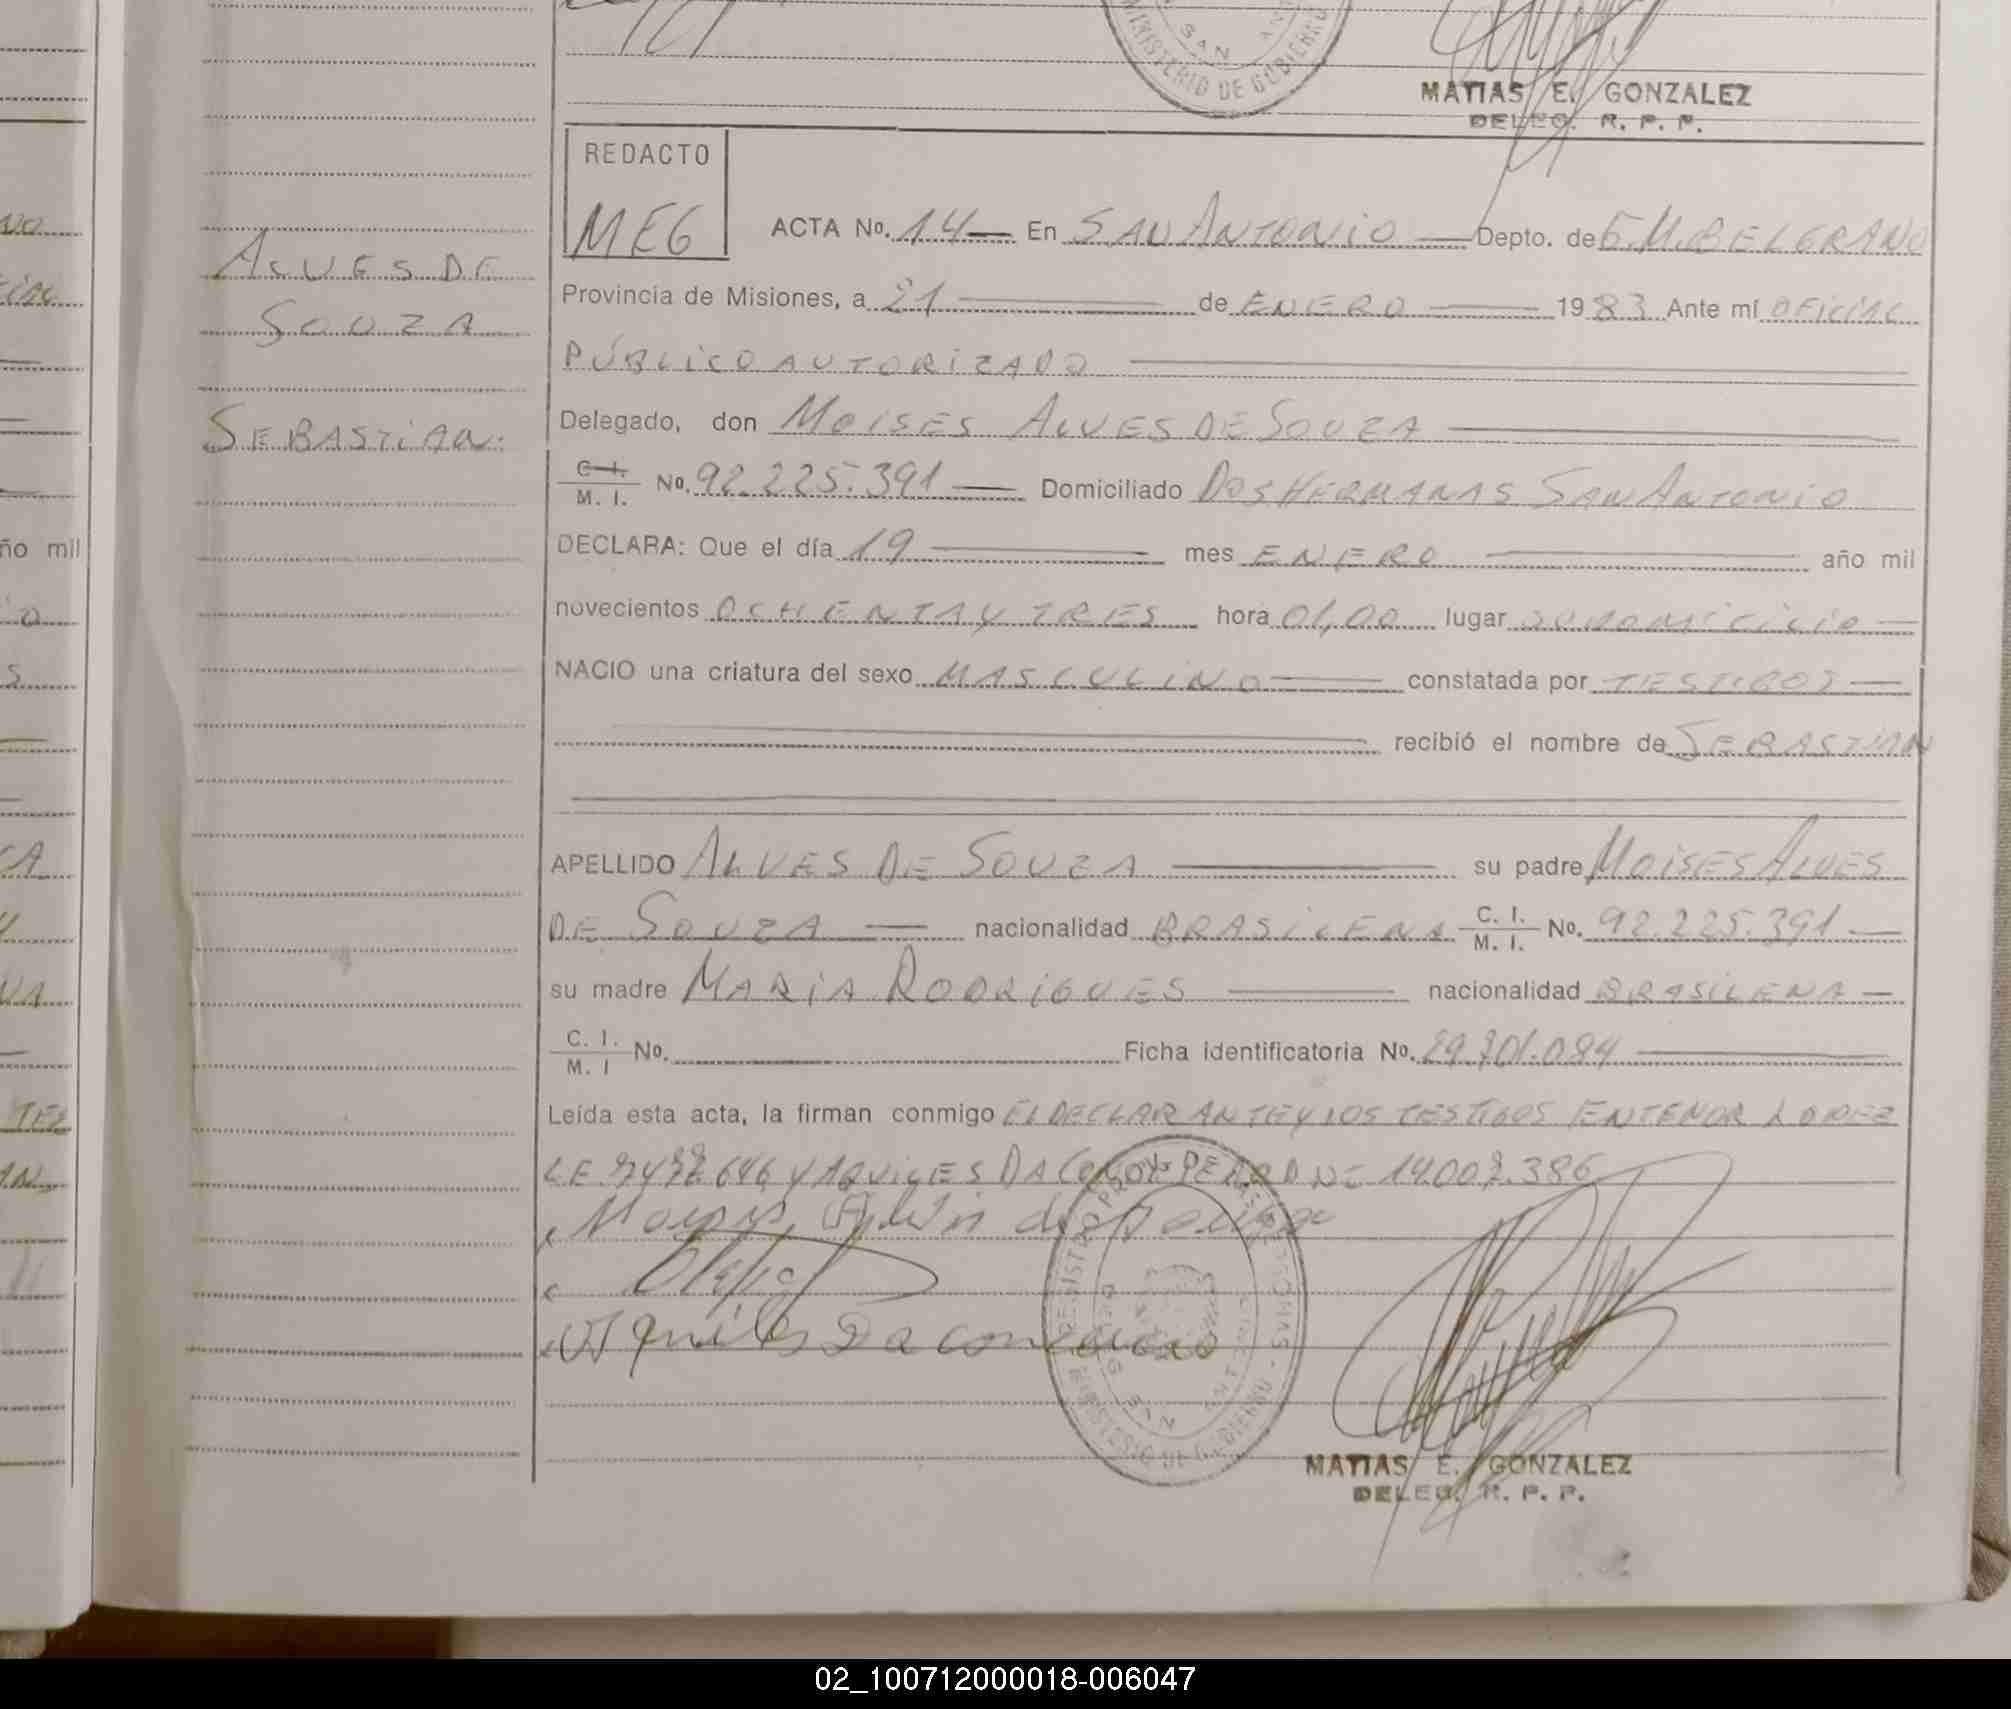 SAN
MINISTERIO DE GOBIERNO
MATIAS E. GONZALEZ
DELEG. R. P. P.
REDACTO
MEG
ACTA No. 14 En SAN ANTONIO Depto. de G.M. BELGRANO
ALVES DE
SOUZA
SEBASTIAN.
Provincia de Misiones, a 21 de ENERO 1983 Ante mí OFICIAL
PÚBLICO AUTORIZADO
Delegado, don MOISES ALVES DE SOUZA
C. I. / M. I. No. 92.225.391 Domiciliado DOS HERMANAS SAN ANTONIO
DECLARA: Que el día 19 mes ENERO año mil
novecientos OCHENTA Y TRES hora 01,00 lugar SU DOMICILIO
NACIO una criatura del sexo MASCULINO constatada por TESTIGOS
recibió el nombre de SEBASTIAN
APELLIDO ALVES DE SOUZA su padre MOISES ALVES
DE SOUZA nacionalidad BRASILENA C. I. / M. I. No. 92.225.391
su madre MARIA RODRIGUES nacionalidad BRASILENA
C. I. / M. I No. Ficha identificatoria No. 29.301.084
Leída esta acta, la firman conmigo EL DECLARANTE Y LOS TESTIGOS ENTENOR LOPEZ
L.E. 646 Y AQUILES DA DNI 14.007.386
MATIAS E. GONZALEZ
DELEG. R. P. P.
ño mil
02_100712000018-006047